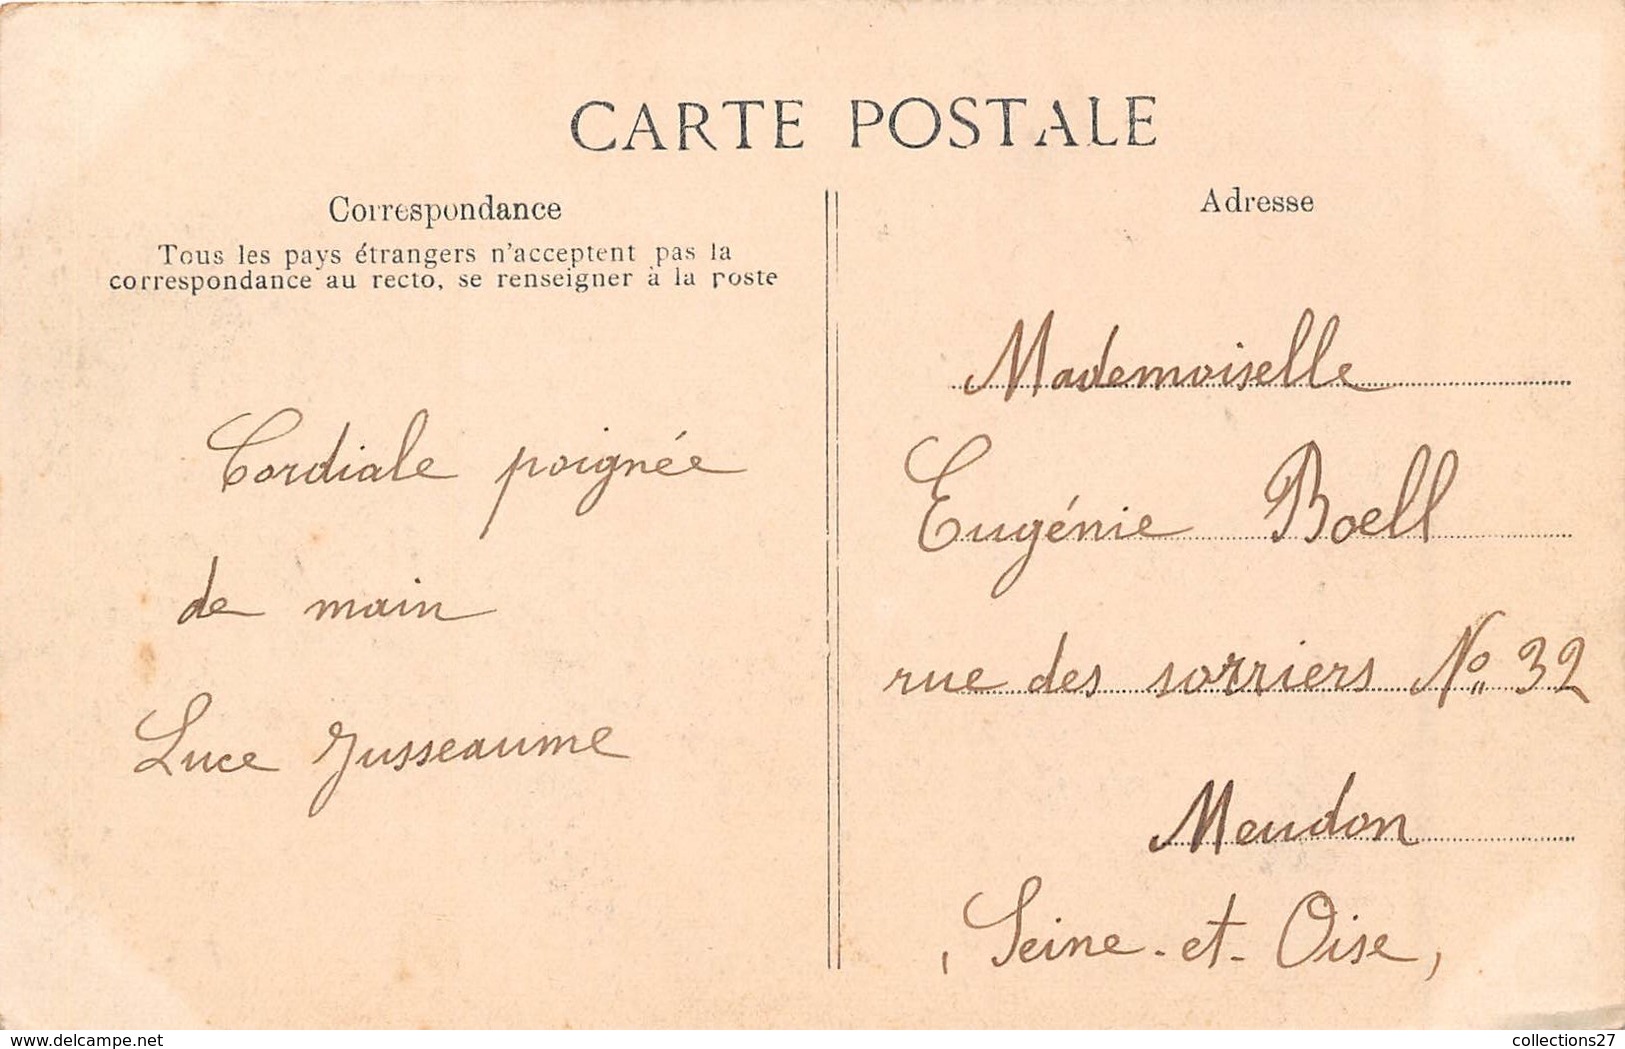 CARTE POSTALE
Correspondance
Tous les pays étrangers n'acceptent pas la
correspondance au recto, se renseigner à la poste
Cordiale poignée
de main
Luce Jusseaume
Adresse
Mademoiselle
Eugénie Boell
rue des sorriers No 32
Meudon
(Seine-et-Oise)
www.delcampe.net
collections27